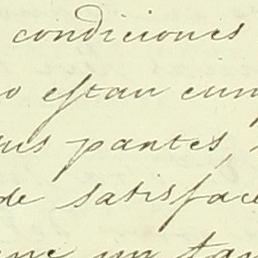 condiciones
o estan cum
us partes,
de satisface
que un tan